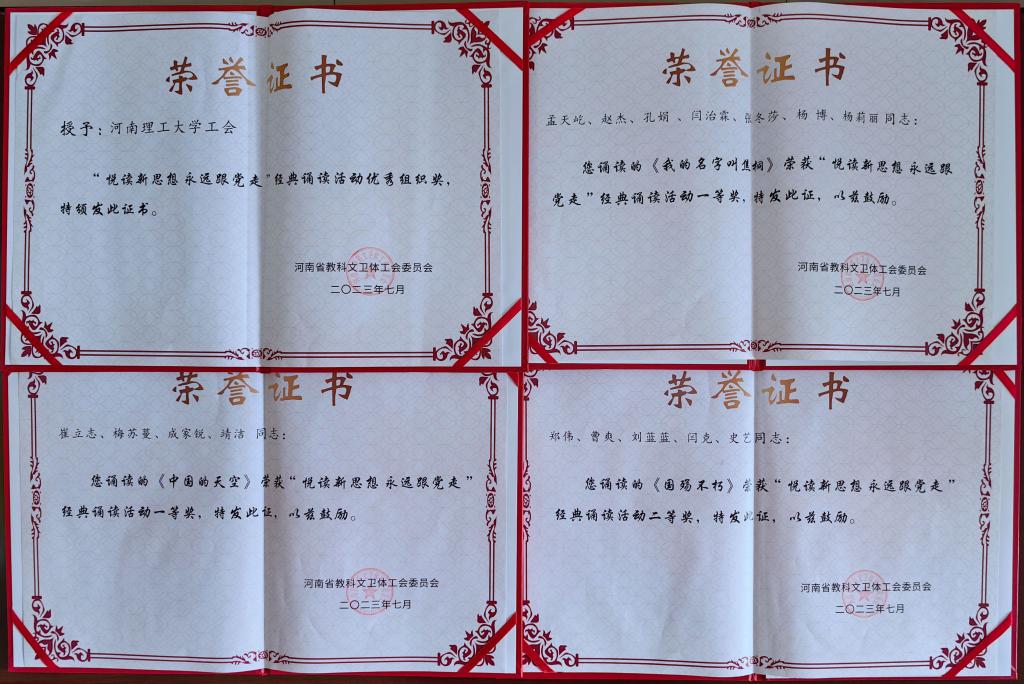 荣誉证书
授予：河南理工大学工会
“悦读新思想 永远跟党走”经典诵读活动优秀组织奖，
特颁发此证书。
河南省教科文卫体工会委员会
二〇二三年七月
荣誉证书
孟天屹、赵杰、孔娟 、闫治霖、张冬莎、杨 博、杨莉丽同志：
您诵读的《我的名字叫焦桐》荣获“悦读新思想 永远跟
党走”经典诵读活动一等奖，特发此证，以兹鼓励。
河南省教科文卫体工会委员会
二〇二三年七月
荣誉证书
崔立志、梅苏蔓、成家锐、靖洁 同志：
您诵读的《中国的天空》荣获“悦读新思想 永远跟党走”
经典诵读活动一等奖，特发此证，以兹鼓励。
河南省教科文卫体工会委员会
二〇二三年七月
荣誉证书
郑伟、曹爽、刘蓝蓝、闫克、史艺同志：
您诵读的《国殇不朽》荣获“悦读新思想 永远跟党走”
经典诵读活动二等奖，特发此证，以兹鼓励。
河南省教科文卫体工会委员会
二〇二三年七月